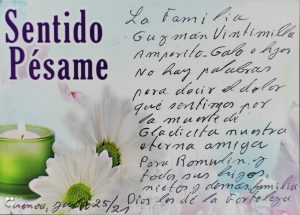 Sentido
Pésame
La Familia
Guzman Vintimilla
Amparito-Galo e hijos
No hay palabras
para decir el dolor
que sentimos por
la muerte de
Gladicita nuestra
eterna amiga
Para Romulin. y
todos sus hijos
nietos y demas familia
Dios les de la Fortaleza
Cuenca, 25/21